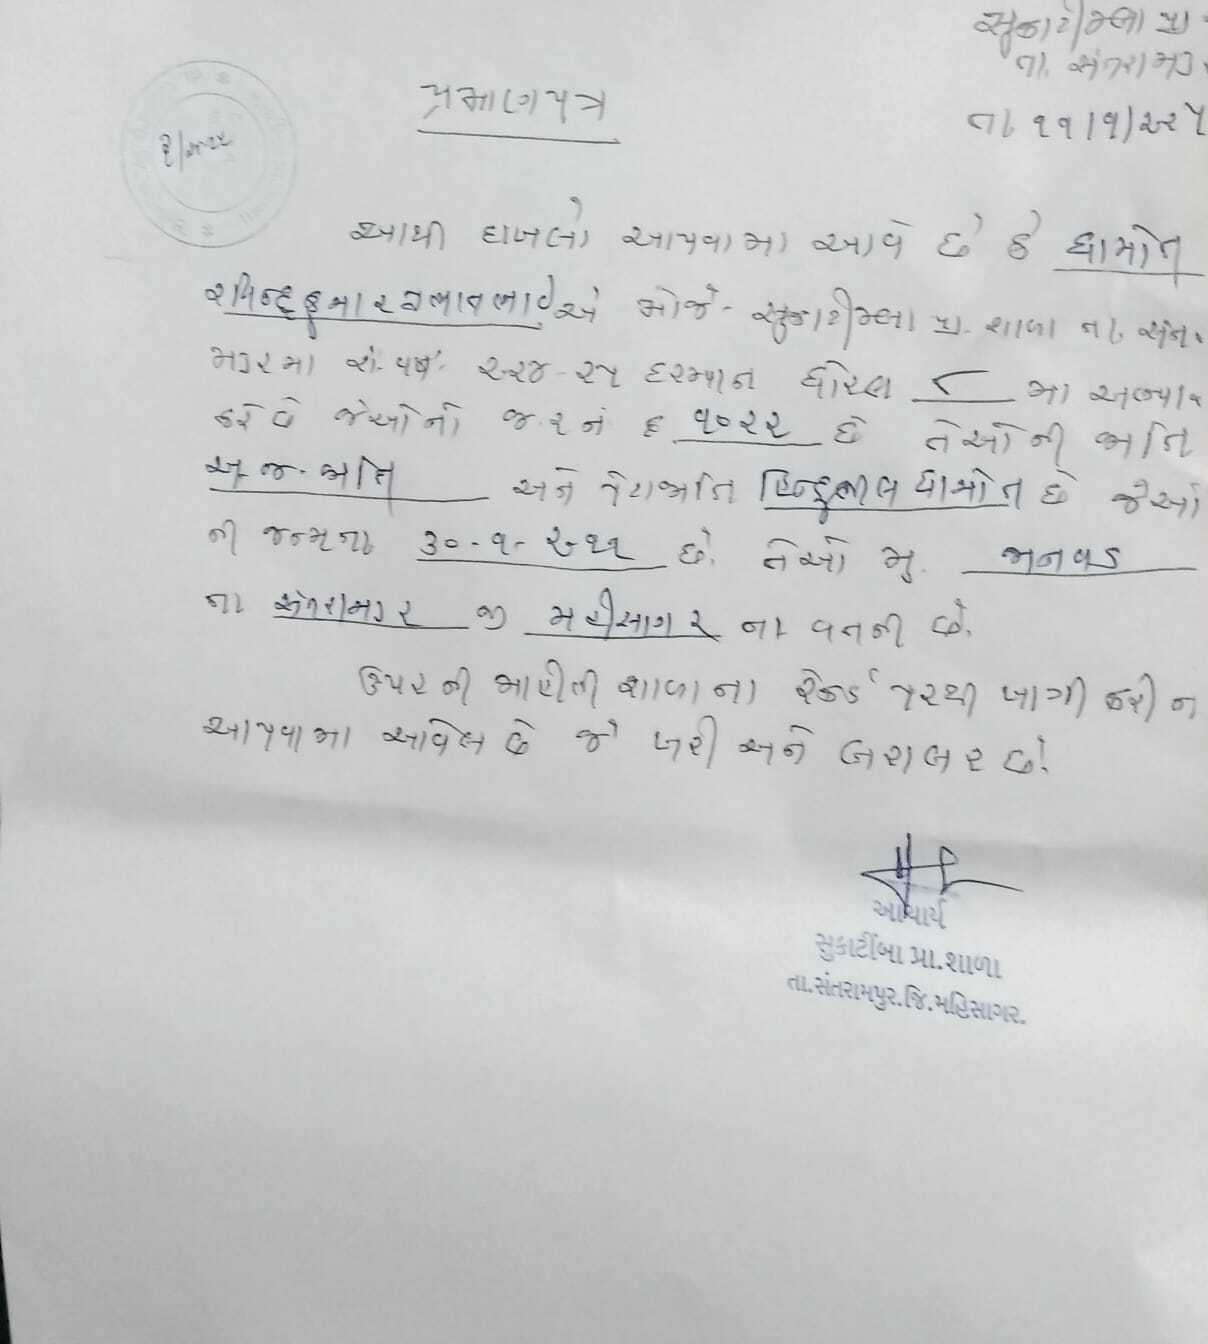 સુકાટીમ્બા પ્રા
તા. સંતરામપુર
તા ૧૧/૧/૨૦૨૫
પ્રમાણપત્ર
આથી દાખલો આપવામા આવે છે કે ધામોત
કુમાર એ મોજે- સુકાટીમ્બા પ્રા. શાળા તા. સંત
મપુરમા શૈ. વર્ષ ૨૦૨૪-૨૫ દરમ્યાન ધોરણ ૮ મા અભ્યાસ
કરે છે જેઓનો જ.ર.નં ૬ ૧૦૨૨ છે તેઓની જાતિ
અ.જ.જાતિ અને પેટાજાતિ હિન્દુભીલ ધામોત છે જેઓ
ની જન્મતા ૩૦-૧-૨૦૧૧ છે. તેઓ મુ. જાનવડ
તા સંતરામપુર જી મહીસાગર ના વતની છે.
ઉપર ની માહીતી શાળા ના રેકર્ડ પરથી ખાત્રી કરી ન
આપવામા આવેલ છે જે ખરી અને બરાબર છે.
આચાર્ય
સુકાટીંબા પ્રા.શાળા
તા.સંતરામપુર.જિ.મહિસાગર.